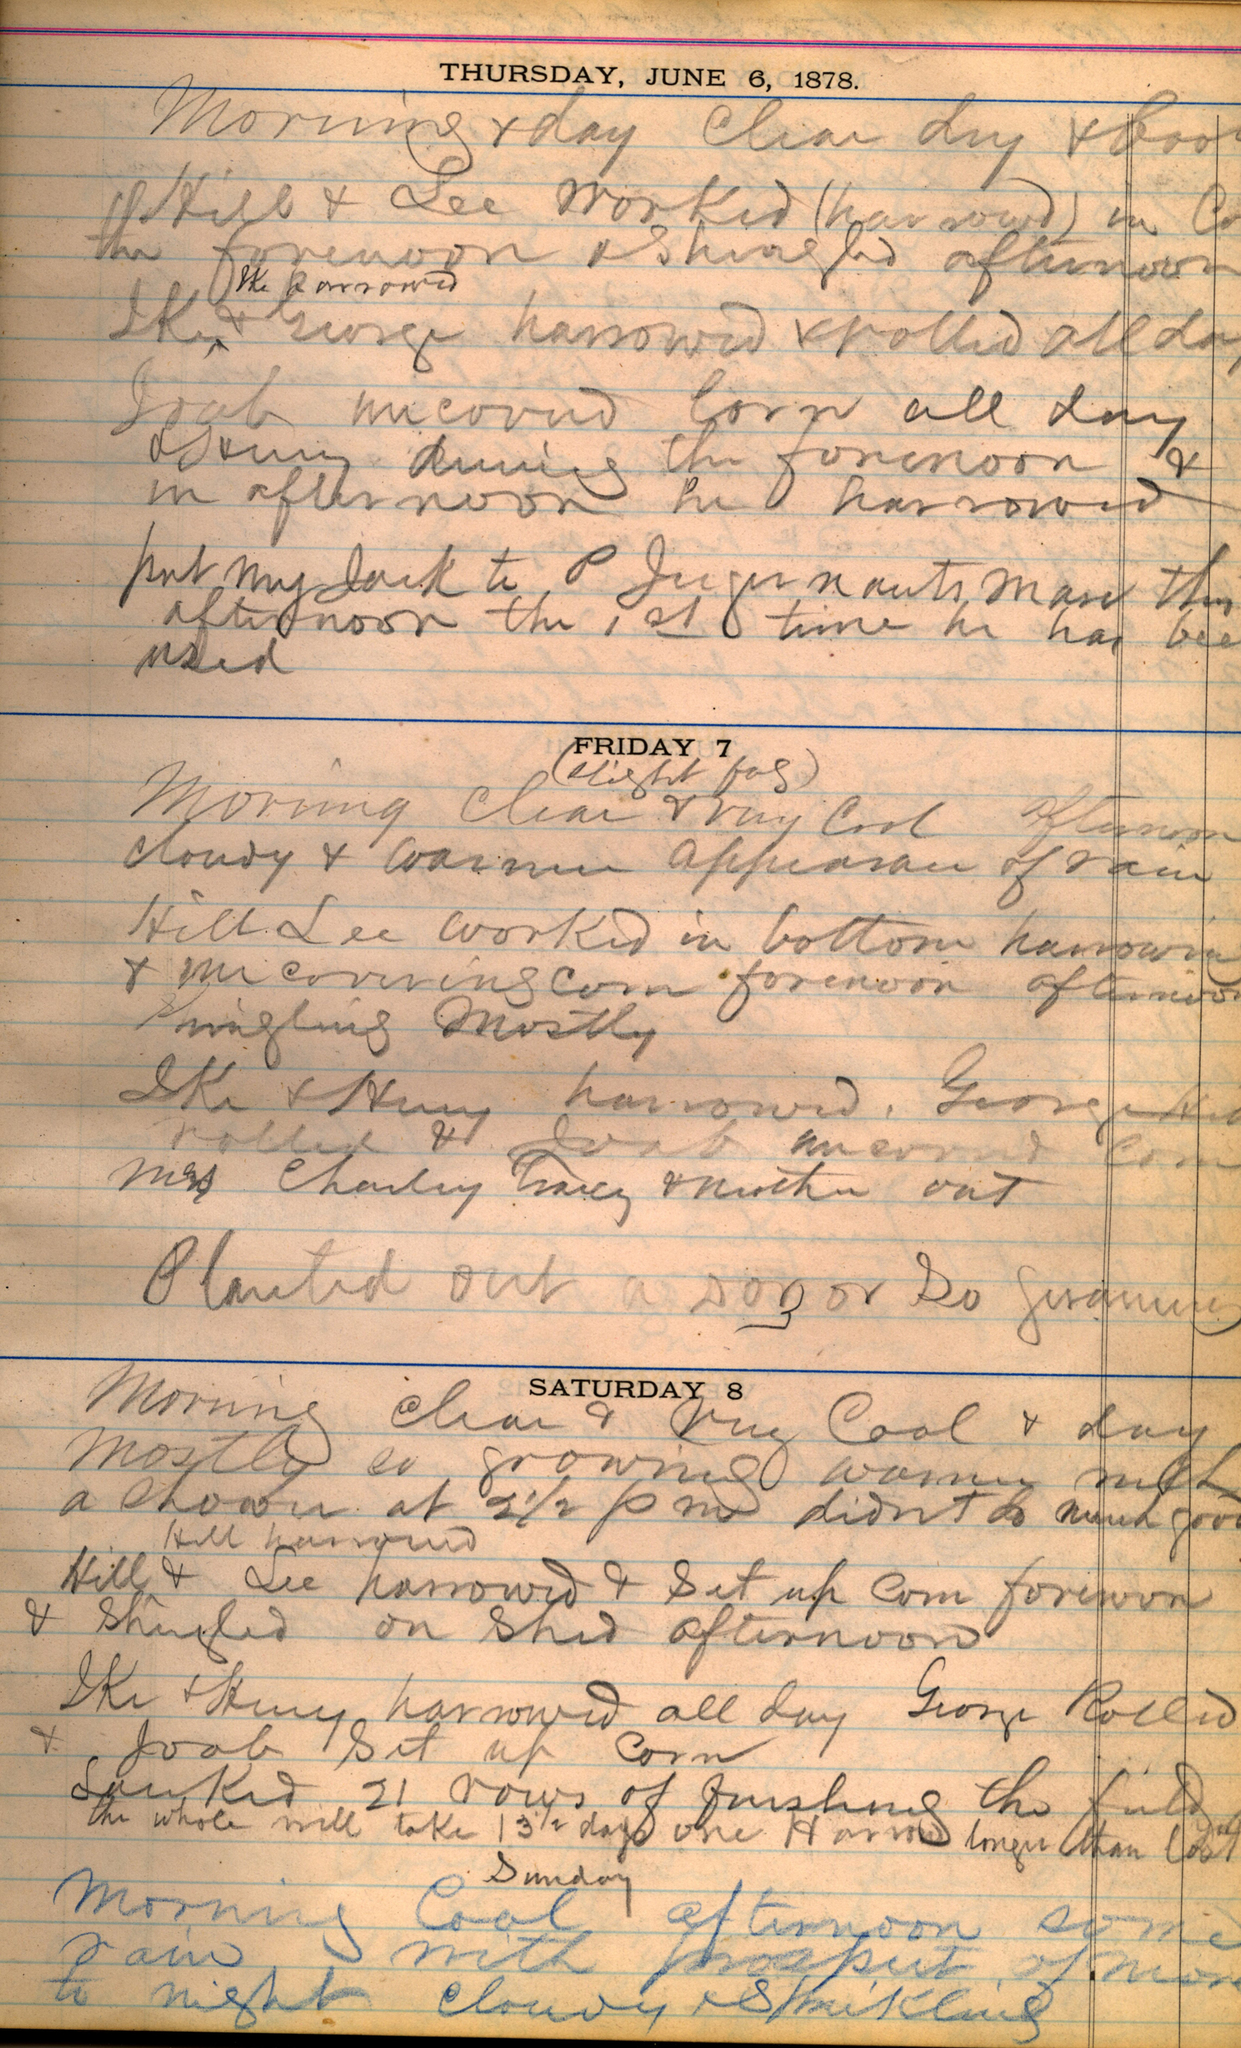 THURSDAY, JUNE 6, 1878.
Morning & day Clear dry & Cool
Hill & Lee Worked (harrowd) in Co
the forenoon & Shingled afternoon
Ike harrowed
Ike & George harrowed & rolled all day
Joab uncovrd Corn all day
& Henry during the forenoon &
in afternoon he harrowed
put my Jack to P Mare this
afternoon the 1st time he has bee
used
FRIDAY 7
(slight fog)
Morning Clear & very Cool afternoon
Cloudy & Warmer appearance of rain
Hill Lee Worked in bottom harrowing
& uncovering Corn forenoon afternoon
Shingling Mostly
Ike & Henry harrowed. George
rolled & Joab uncovrd Corn
Mrs Charley Tracy & Mother out
Planted out a doz or so geraniums
SATURDAY 8
Morning Clear & Very Cool & day
Mostly so growing warmer with
a Shower at 2 1/2 P m didnt do much good
Hill harrowed
Hill & Lee harrowed & Set up Corn forenoon
& Shingled on Shed afternoon
Ike & Henry harrowed all day George Rolled
& Joab Set up Corn
Lacked 21 rows of finishing the field
the whole will take 13 1/2 days one Harrow longer than last
Sunday
Morning Cool afternoon some
rain with prospect of more
to night Cloudy & Sprinkling